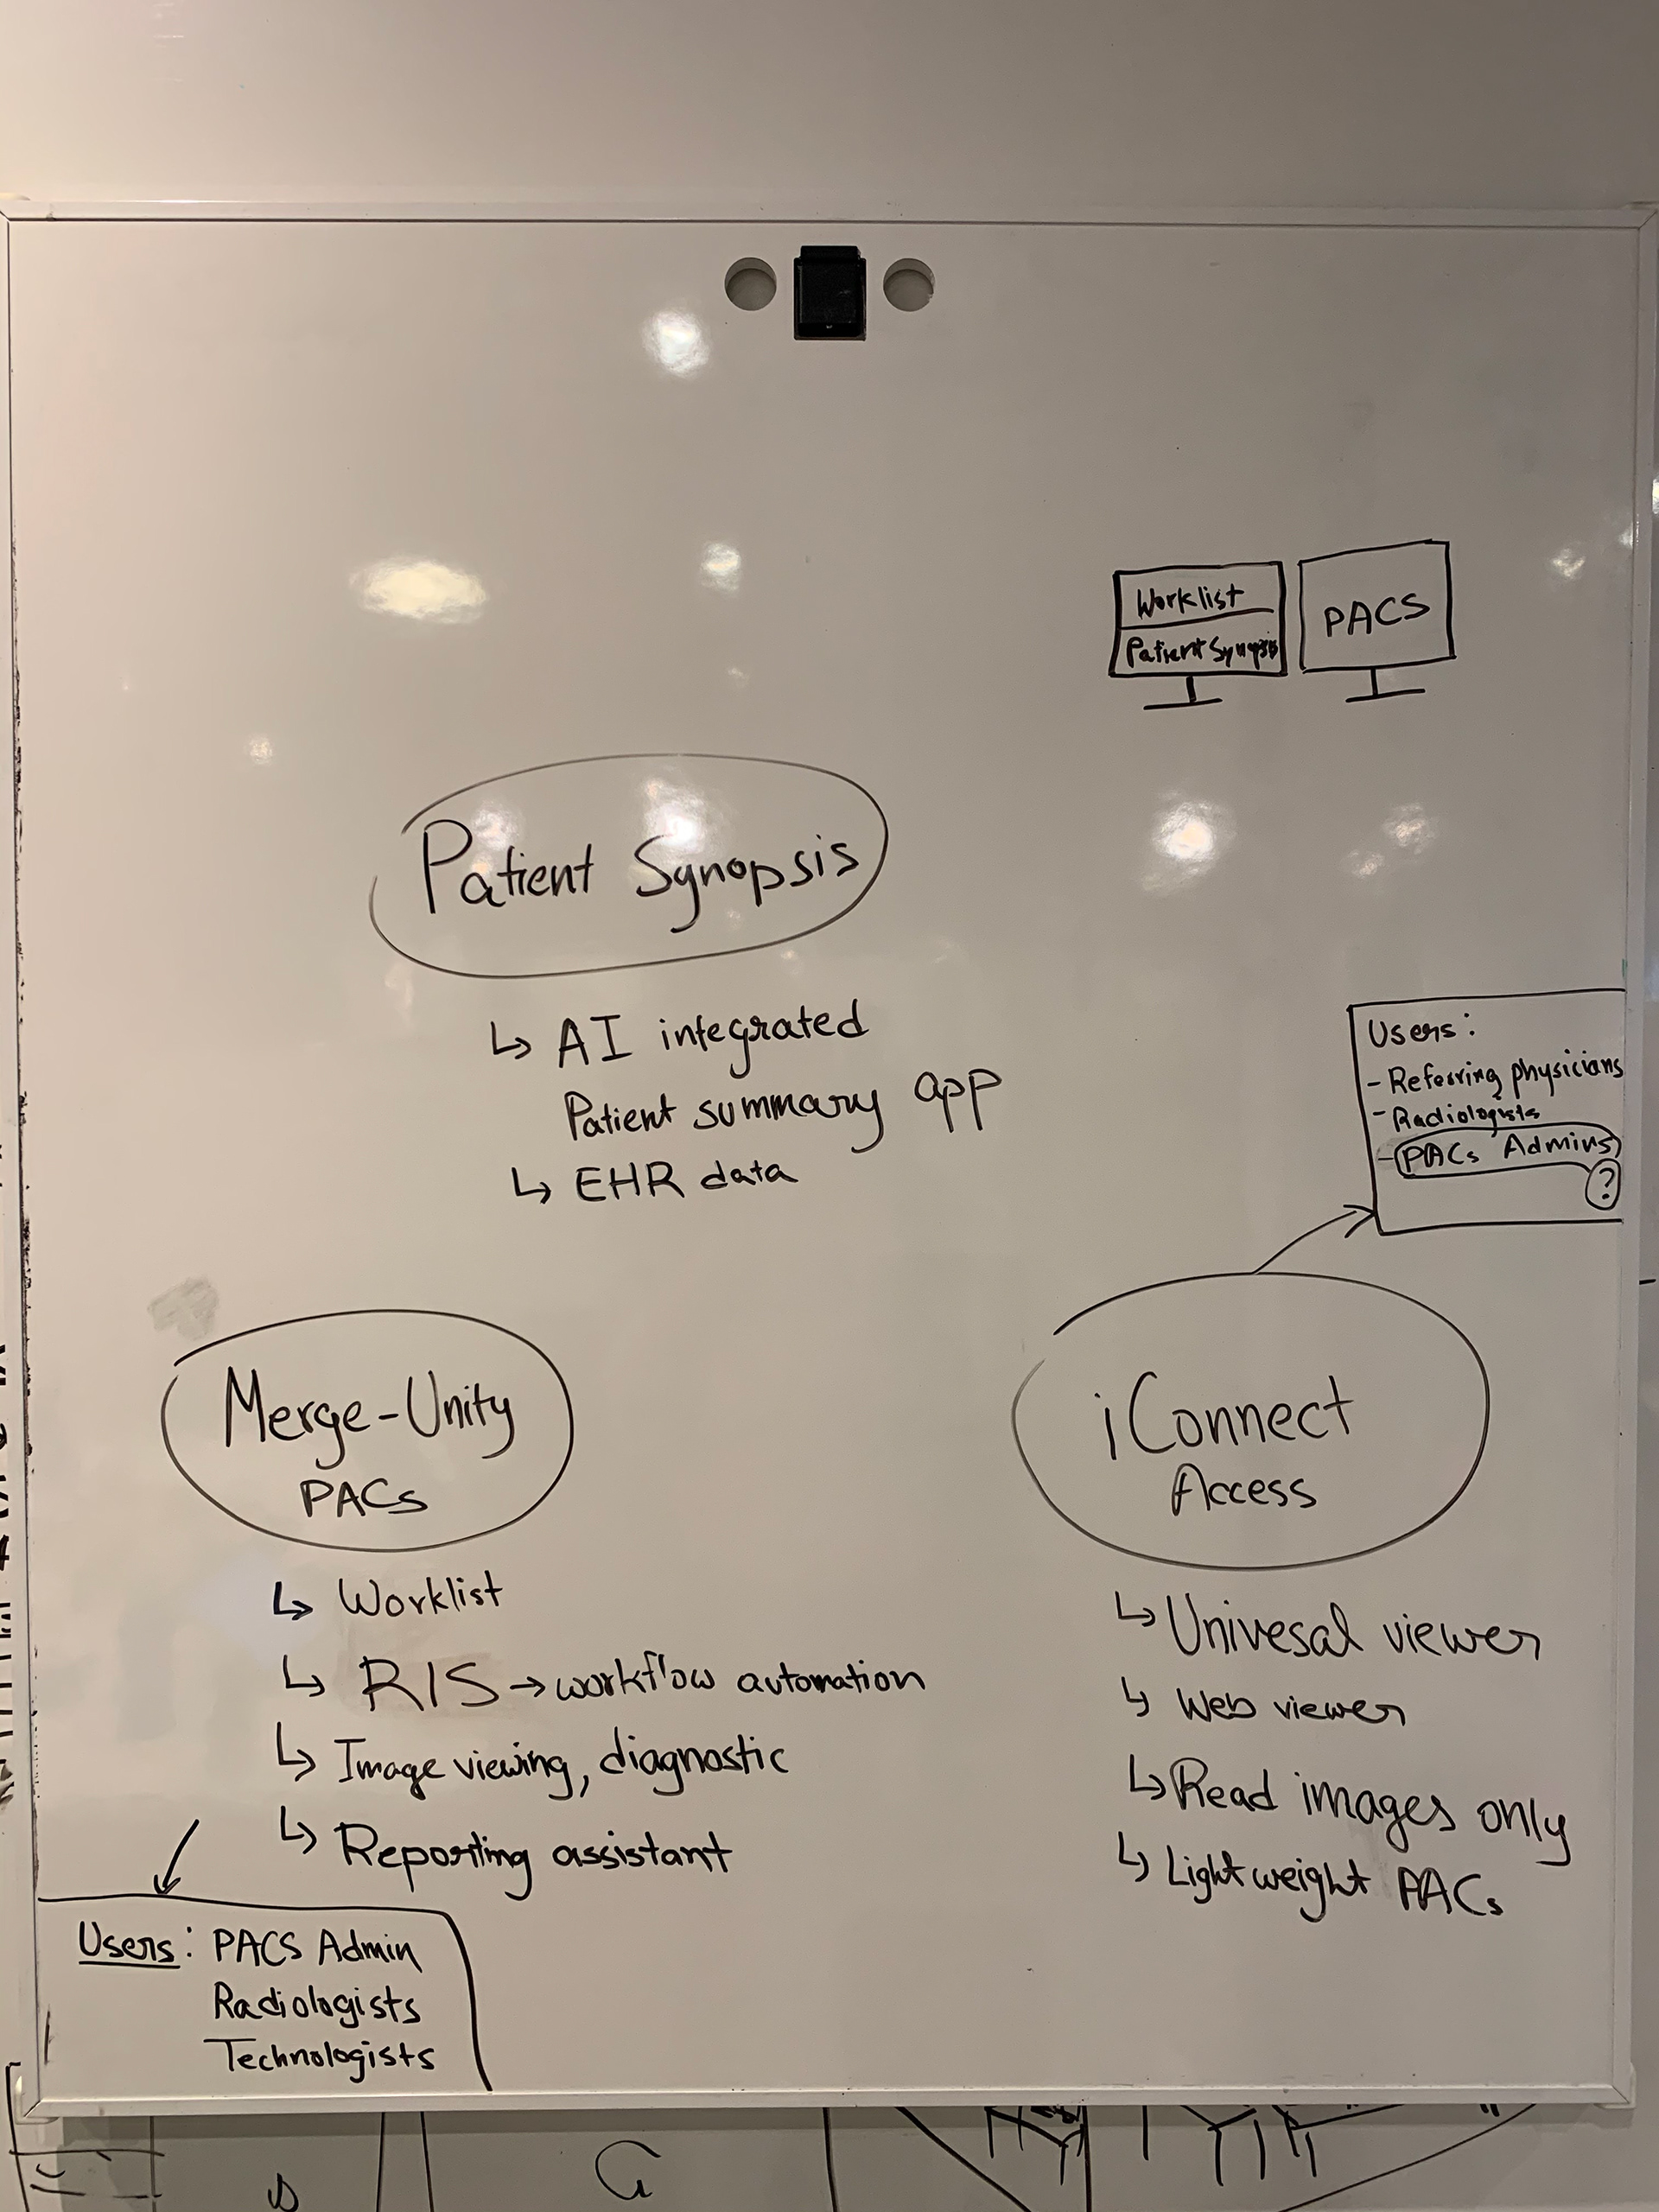 Worklist
Patient Synopsis
PACS
Patient Synopsis
↳ AI integrated
Patient summary app
↳ EHR data
Users:
- Referring physicians
- Radiologists
- PACs Admins
?
Merge-Unity
PACs
↳ Worklist
↳ RIS → workflow automation
↳ Image viewing, diagnostic
↳ Reporting assistant
Users: PACS Admin
Radiologists
Technologists
iConnect
Access
↳ Univesal viewer
↳ Web viewer
↳ Read images only
↳ Lightweight PACs